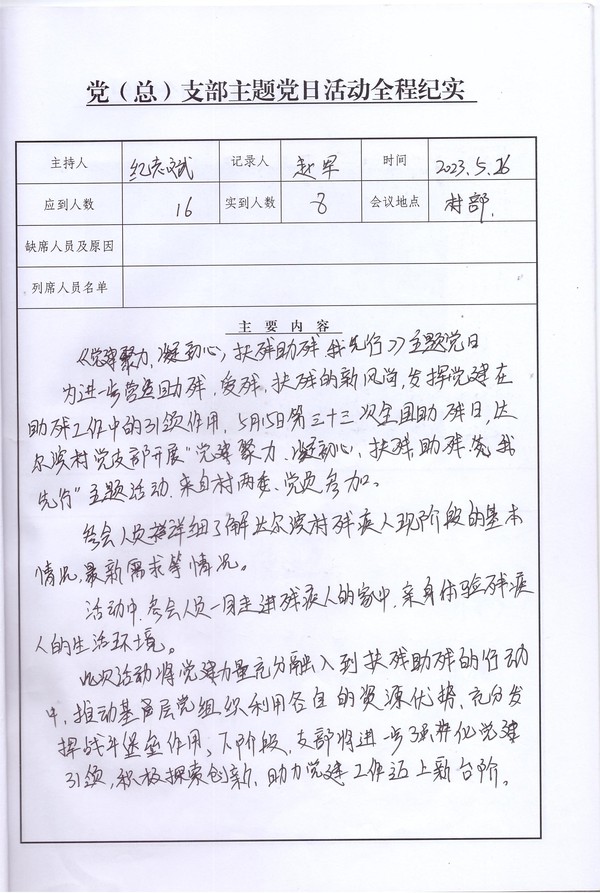 党（总）支部主题党日活动全程纪实
主持人 纪志斌 记录人 赵军 时间 2023.5.26
应到人数 16 实到人数 8 会议地点 村部.
缺席人员及原因
列席人员名单
主要内容
《党建聚力、凝动心，扶残助残 我先行》主题党日
为进一步营造助残，爱残，扶残的新风尚，发挥党建在
助残工作中的引领作用，5月15日第三十三次全国助残日，达
尔滨村党支部开展"党建聚力、凝动心，扶残助残，我
先行"主题活动.来自村两委、党员参加。
参会人员详细了解达尔滨村残疾人现阶段的基本
情况，最新需求等情况。
活动中，参会人员一同走进残疾人的家中，亲身体验残疾
人的生活环境。
此次活动将党建力量充分融入到扶残助残的行动
中，推动基层党组织利用各自的资源优势、充分发
挥战斗堡垒作用、下阶段，支部将进一步强化党建
引领，积极探索创新，助力党建工作迈上新台阶。